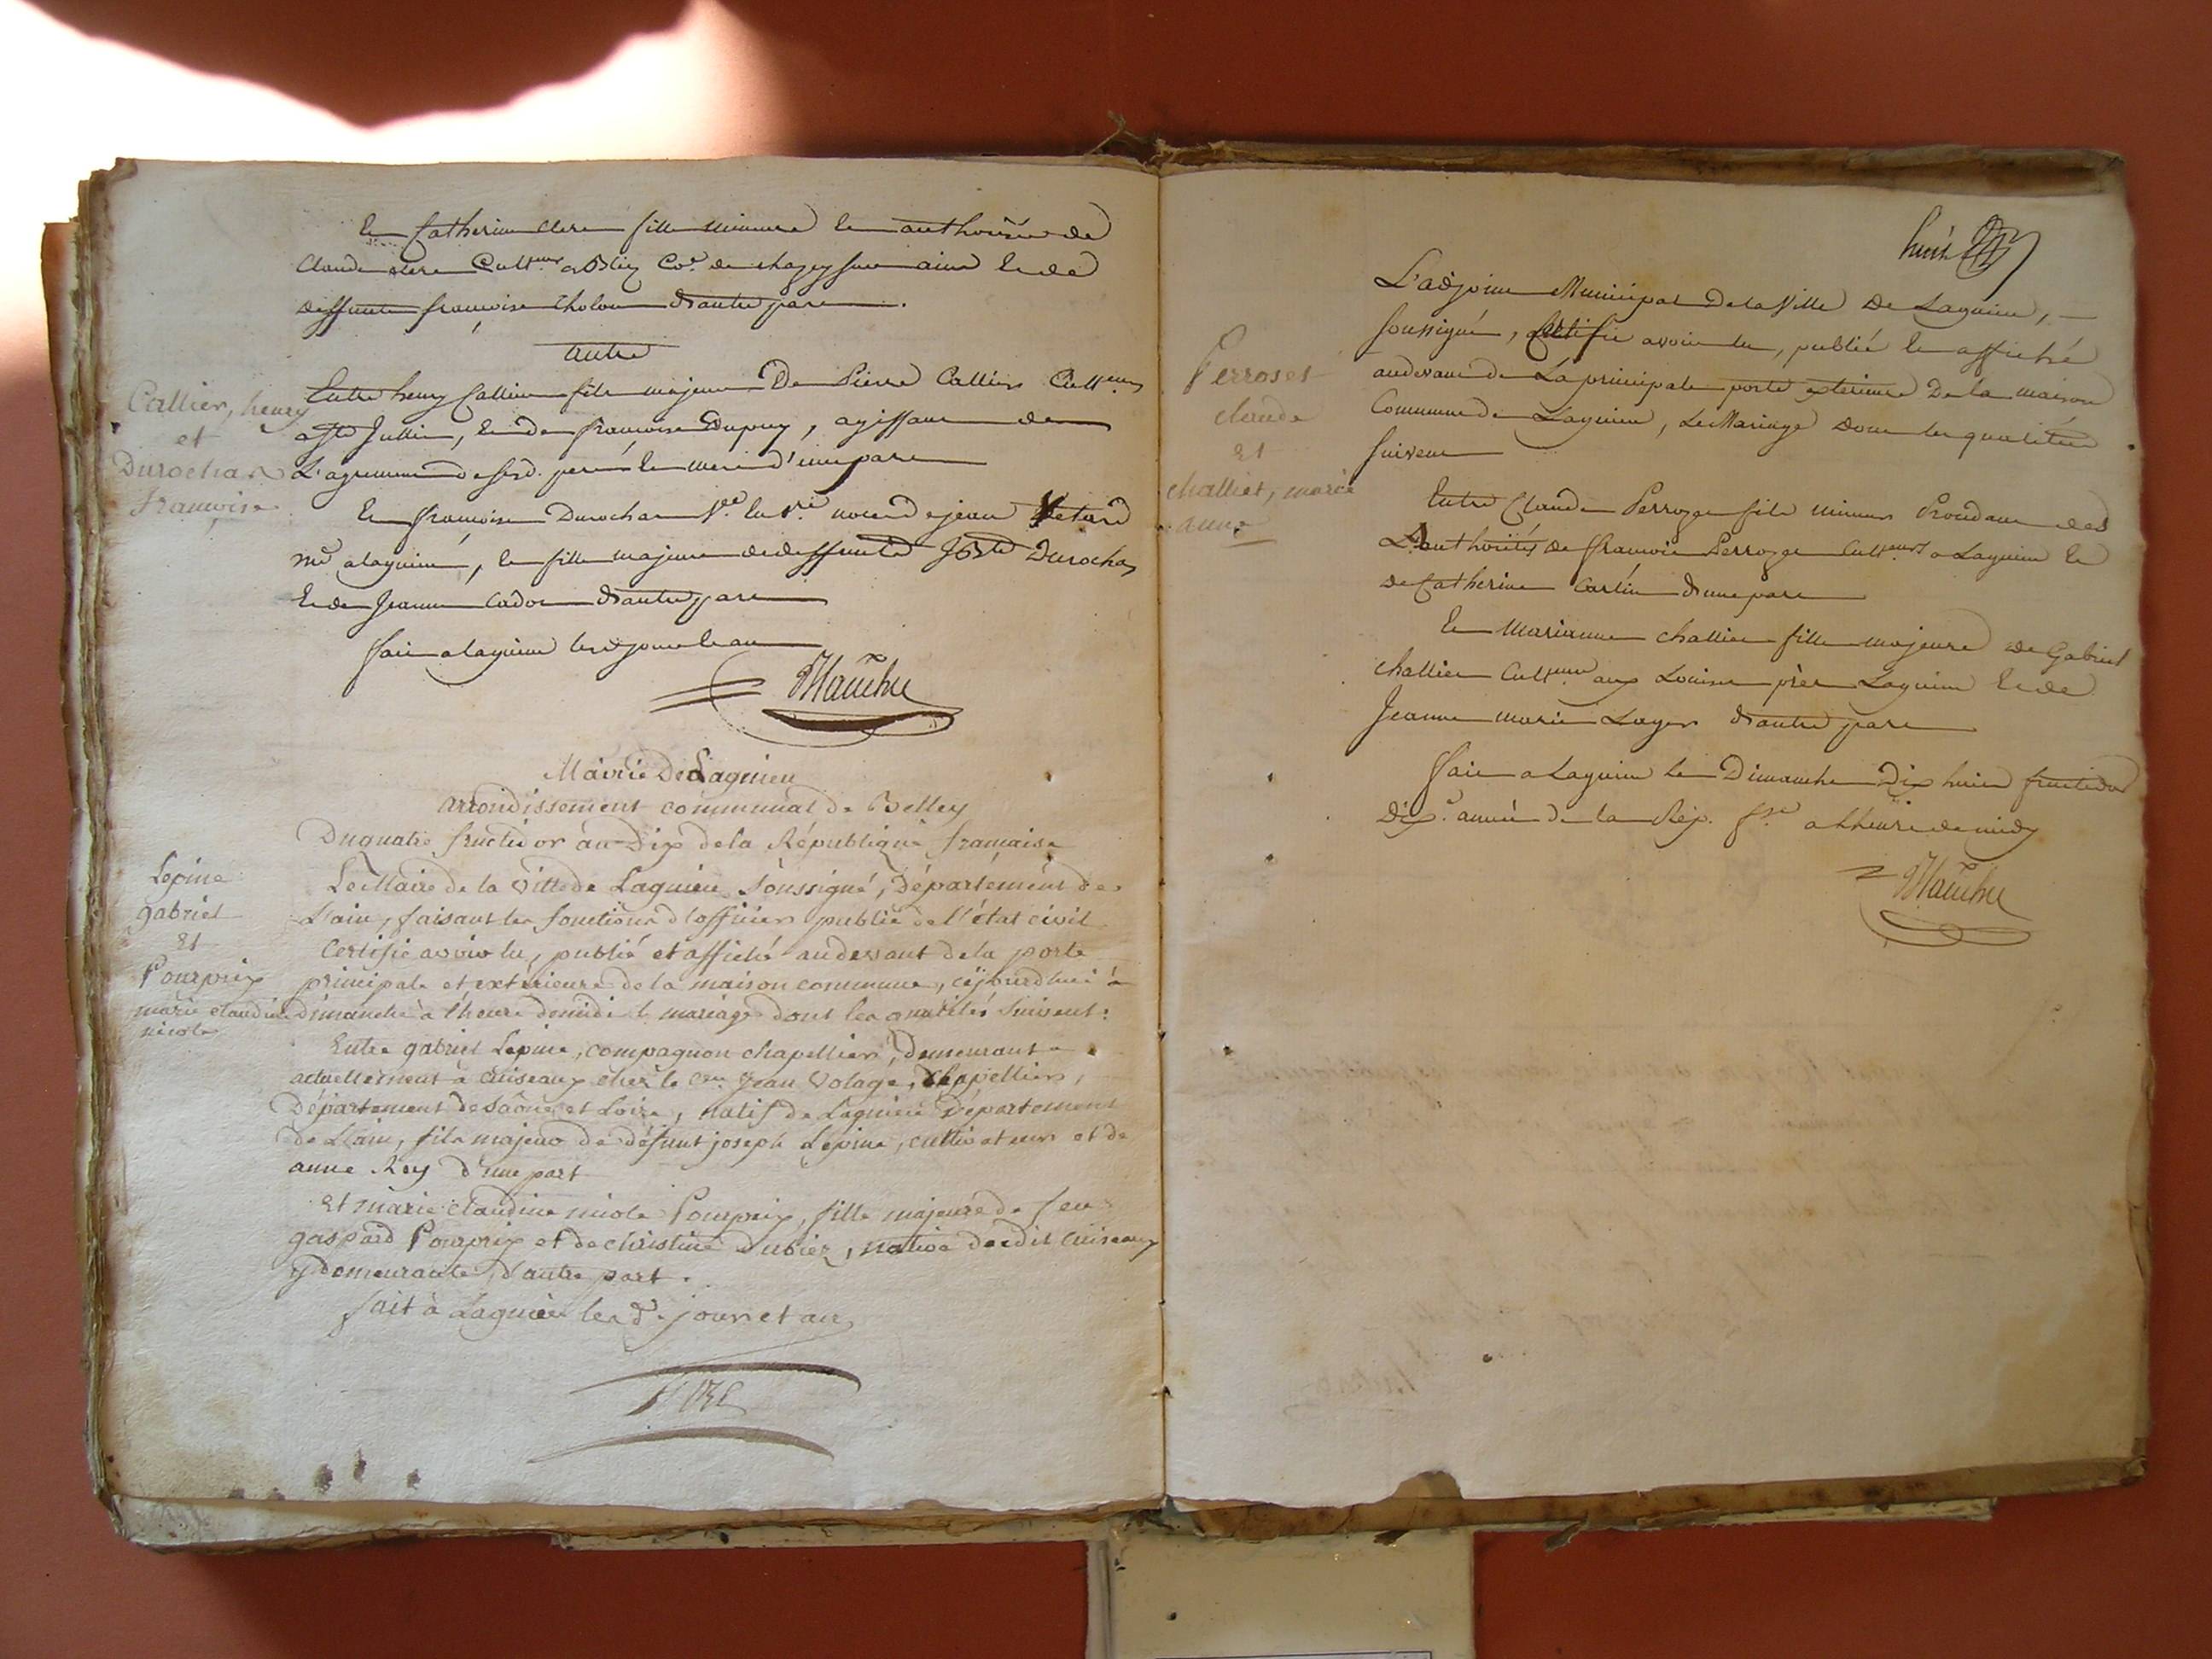 Et Catherine Clere fille mineure et authorisée de
Claude Clere Cult.eur a Bliez Co.e de Chazey sur ain et de
deffunte françoise Cholon d'autre part.
Autre
Callier, henry
et
Durochat
françoise
Entre henry Callier fils majeur De Pierre Callier Cult.eur
a St Jullin, et de françoise Dupuy, agissant de
L'agrement de sesd. peré et mere d'une part
Et françoise Durochat V.e en de jean
md a lagnieu, et fille majeure de deffunts Durochat
Et de Jeanne Cador d'autre part
fait a lagnieu lesd jour et an
Mairie De Lagnieu
arrondissement communal de Belley
Du quatre fructidor an Dix de la République française
Lepine
gabriel
Et
Pourprix
marie claudine
nicole
Le Maire de la Ville de Lagnieu Soussigné, Département de
L'ain, faisant les fonctions d'officier public de l'état civil
Certifie avoir lu, publié et affiché au devant de la porte
principale et extérieure de la maison commune, cejourd'hui
dimanche à l'heure de midi le mariage dont les qualités Suivent:
Entre gabriel Lepine, compagnon chapellier, demeurant
actuellement à Cuiseaux chez le Cen Jean Volage, chapellier,
Département de Saône et Loire, natif de Lagnieu Département
de L'ain, fils majeur de défunt joseph Lepine, cultivateur et de
anne Rey d'une part
Et marie claudine nicole Pourprix, fille majeure de feu
gaspard Pourprix et de christine Dubiez, native dudit Cuiseaux
y demeurante, d'autre part.
fait à Lagnieu les d. jour et an
huit
L'adjoint Municipal De la Ville De Lagnieu,
soussigné, Certifie avoir lu, publié et affiché
audevant de La principale porte exterieure De la maison
Commune de Lagnieu, Le Mariage dont les qualités
suivent
Perroset
claude
Et
challiet, marie
anne
Entre Claude Perrozet fils mineur Procedant de
L'authorités de françois Perrozet Cult.eur a Lagnieu et
de Catherine Carlin d'une part
Et Marianne challiet fille majeure de Gabriel
challiet Cult.eur aux Louises près Lagnieu Et de
Jeanne marie Layer d'autre part
fait a Lagnieu le Dimanche Dix huit fructidor
Dix.e année de la Rép. fse a L'heure de midy